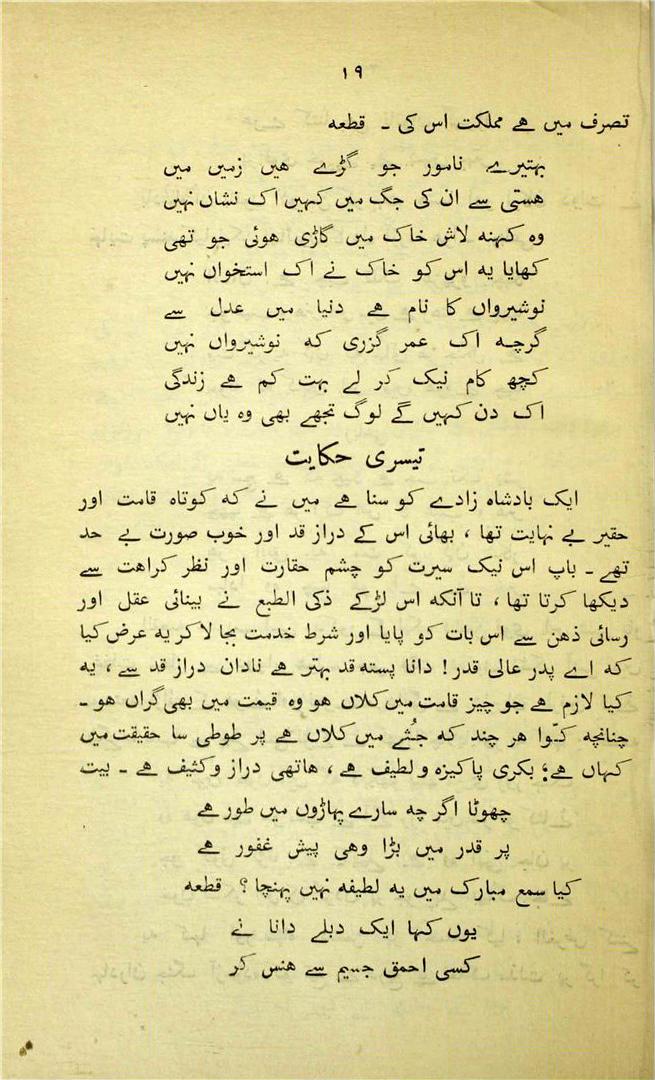 ۱۹
تصرف میں ہے مملکت اس کی ۔ قطعه
بہتیرے نامور جو گڑے ھیں زمیں میں
ھستی سے ان کی جگ میں کہیں اک نشاں نہیں
وہ کہنہ لاش خاک میں گاڑی ھوئی جو تھی
کھایا یہ اس کو خاک نے اک استخواں نہیں
نوشیرواں کا نام ھے دنیا میں عدل سے
گرچہ اک عمر گزری کہ نوشیرواں نہیں
کچھ کام نیک کر لے بہت کم ھے زندگی
اک دن کہیں گے لوگ تجھے بھی وہ یاں نہیں
تیسری حکایت
ایک بادشاہ زادے کو سنا ھے میں نے کہ کوتاہ قامت اور
حقیر بے نہایت تھا ، بھائی اس کے دراز قد اور خوب صورت بے حد
تھے ۔ باپ اس نیک سیرت کو چشم حقارت اور نظر کراھت سے
دیکھا کرتا تھا ، تا آنکہ اس لڑکے ذکی الطبع نے بینائی عقل اور
رسائی ذھن سے اس بات کو پایا اور شرط خدمت بجا لا کر یہ عرض کیا
کہ اے پدر عالی قدر! دانا پستہ قد بہتر ھے نادان دراز قد سے ، یہ
کیا لازم ھے جو چیز قامت میں کلاں ھو وہ قیمت میں بھی گراں ھو ۔
چنانچہ کوّا ھر چند کہ جُثے میں کلاں ھے پر طوطی سا حقیقت میں
کہاں ھے؛ بکری پاکیزہ و لطیف ھے ، ھاتھی دراز و کثیف ھے ۔ بیت
چھوٹا اگر چہ سارے پہاڑوں میں طور ھے
پر قدر میں بڑا وھی پیش غفور ھے
کیا سمع مبارک میں یہ لطیفہ نہیں پہنچا ؟ قطعه
یوں کہا ایک دبلے دانا نے
کسی احمق جسیم سے ھنس کر